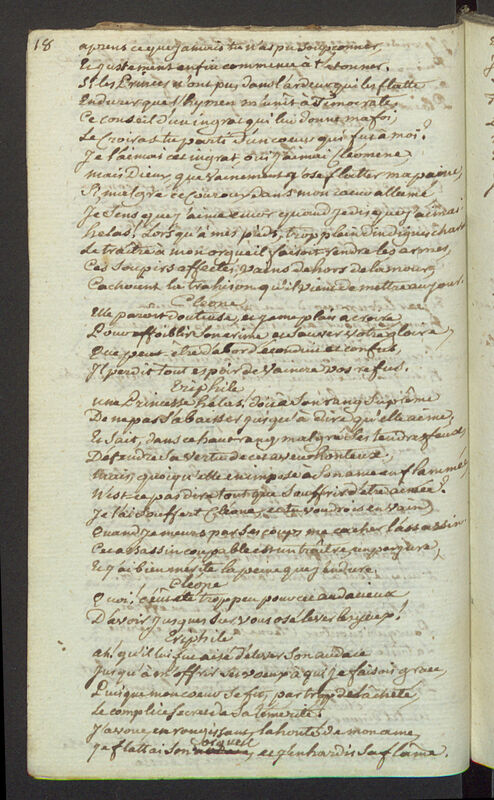 18
aprens ce que jamais tu n'as pu soupçonner,
Et justement enfin commence a t'etonner.
Si les Princes n'ont pus dans l'ardeur qui les flatte
Endurer que l'hymen m'unit a Timocrate,
Ce conseil d'un ingrat qui lui donne ma foi,
Le Croiras tu parti d'un coeur qui fut a moi?
Je l'aimois cet ingrat, oui j'aimai Cléomene
mais Dieux, que vainement j'ose flatter ma peine,
Si malgré ce Couroux dans mon coeur allumé
Je Sens que j'aime encor quand je dis que j'aimai.
helas! Lorsqu'a mes pieds, trop plein d'indignes charmes
Le traitre a mon orgueil faisoit rendre les armes,
Ces Soupirs affectés, vains dehors de l'amour,
Cachoient la trahison qu'il vient de mettre au jour.
Cleone
Elle paroit douteuse, et j'aime plus a croire
Pour affoiblir Son crime et sauver votre gloire,
Que peut etre d'abord econduit et confus,
Il perdit tout espoir de vaincre vos refus.
Eriphile
une Princesse helas, doit a Son rang Suprême
De ne pas S'abaisser jusqu'a dire qu'elle aime,
Et Sait, dans ce haut rang, malgré Ses tendres feux,
Defendre Sa vertu de cet aveu honteux.
Mais, quoi qu'elle en impose a Son ame enflammée,
N'est-ce pas dire tout que Souffrir d'être aimée?
Je l'ai Souffert Cleone, et tu voudrois en vain
Quand je meurs par Ses coups me cacher l'assassin.
Cet assassin coupable est un traître, un perjure,
Et j'ai bien merité la peine que j'endure.
Cleone
Quoi! C'eut eté trop peu pour cet audacieux
D'avoir jusques Sur vous osé lever les yeux!
Eriphile
ah! qu'il lui fut aisé d'elever Son audace
Jusqu'à m'offrir Ses voeux a qui je faisois grace,
Puisque mon coeur Se fit, par trop de lacheté
Le complice Secret de Sa témerité.
J'avoue, en rougissant, la honte de mon ame,
Je flattai Son orgueil, et j'enhardis Sa flâme.